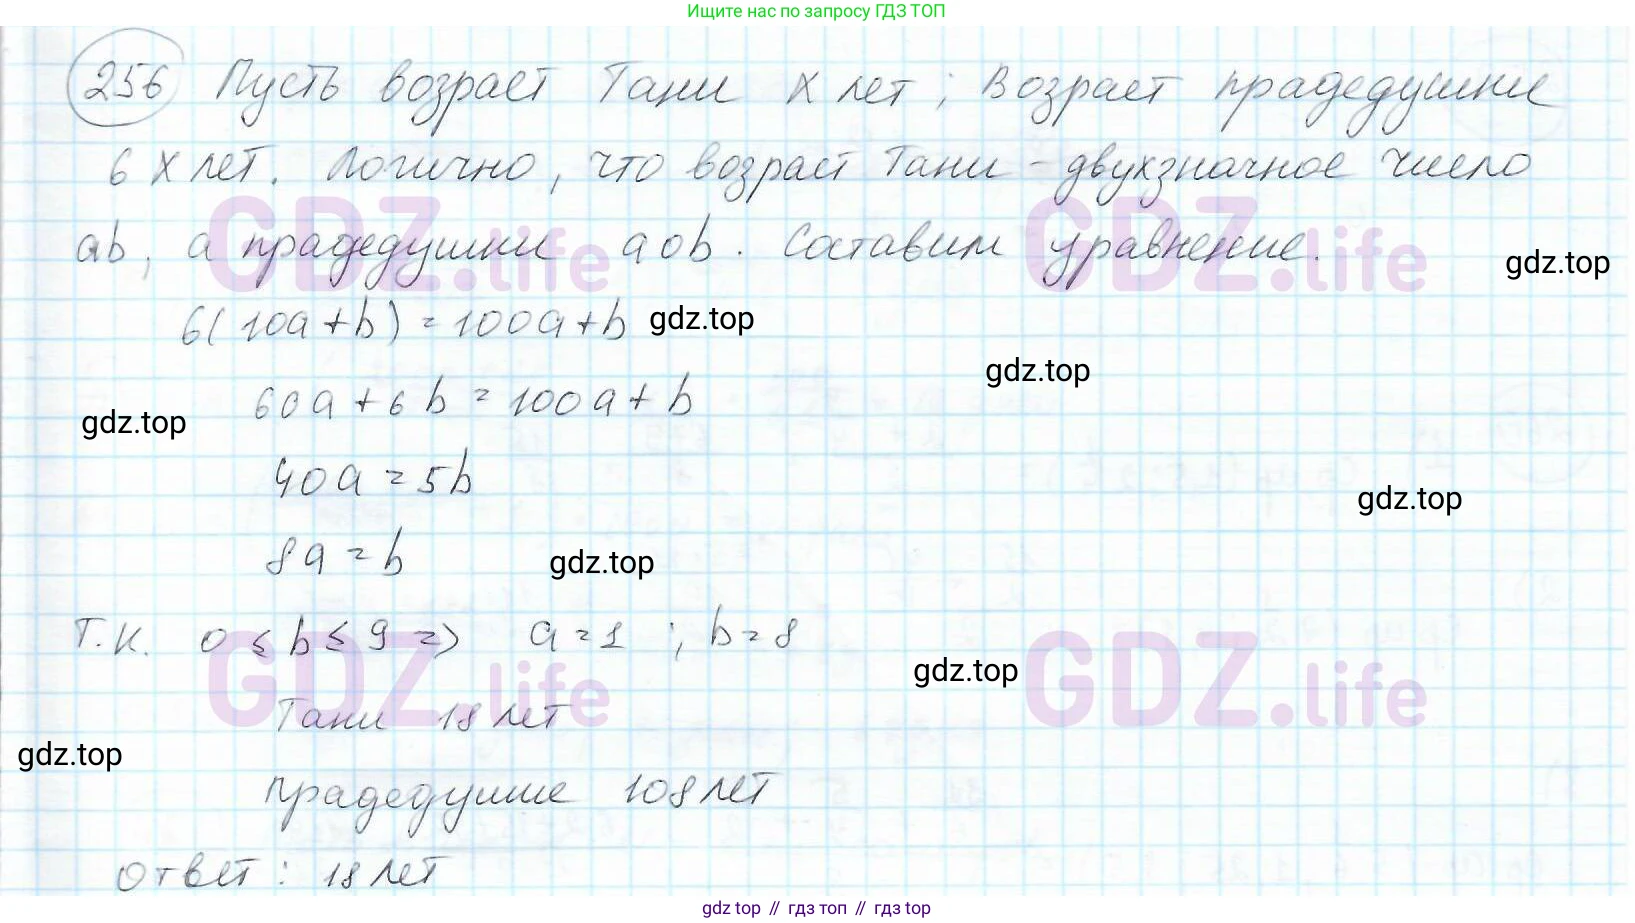 Ищите нас по запросу ГДЗ ТОП
256 Пусть возраст Тани x лет; Возраст прадедушки
6x лет. Логично, что возраст Тани - двухзначное число
ab, а прадедушки a0b. Составим уравнение.
GDZ.life GDZ.life
gdz.top
6(10a+b)=100a+b gdz.top
gdz.top
60a+6b=100a+b
gdz.top
40a=5b
gdz.top
8a=b gdz.top
Т.К. 0≤b≤9 => a=1 ; b=8
gdz.top
GDZ.life GDZ.life
Тани 18 лет
gdz.top
Прадедушке 108 лет
Ответ: 18 лет
gdz top // гдз топ // гдз top